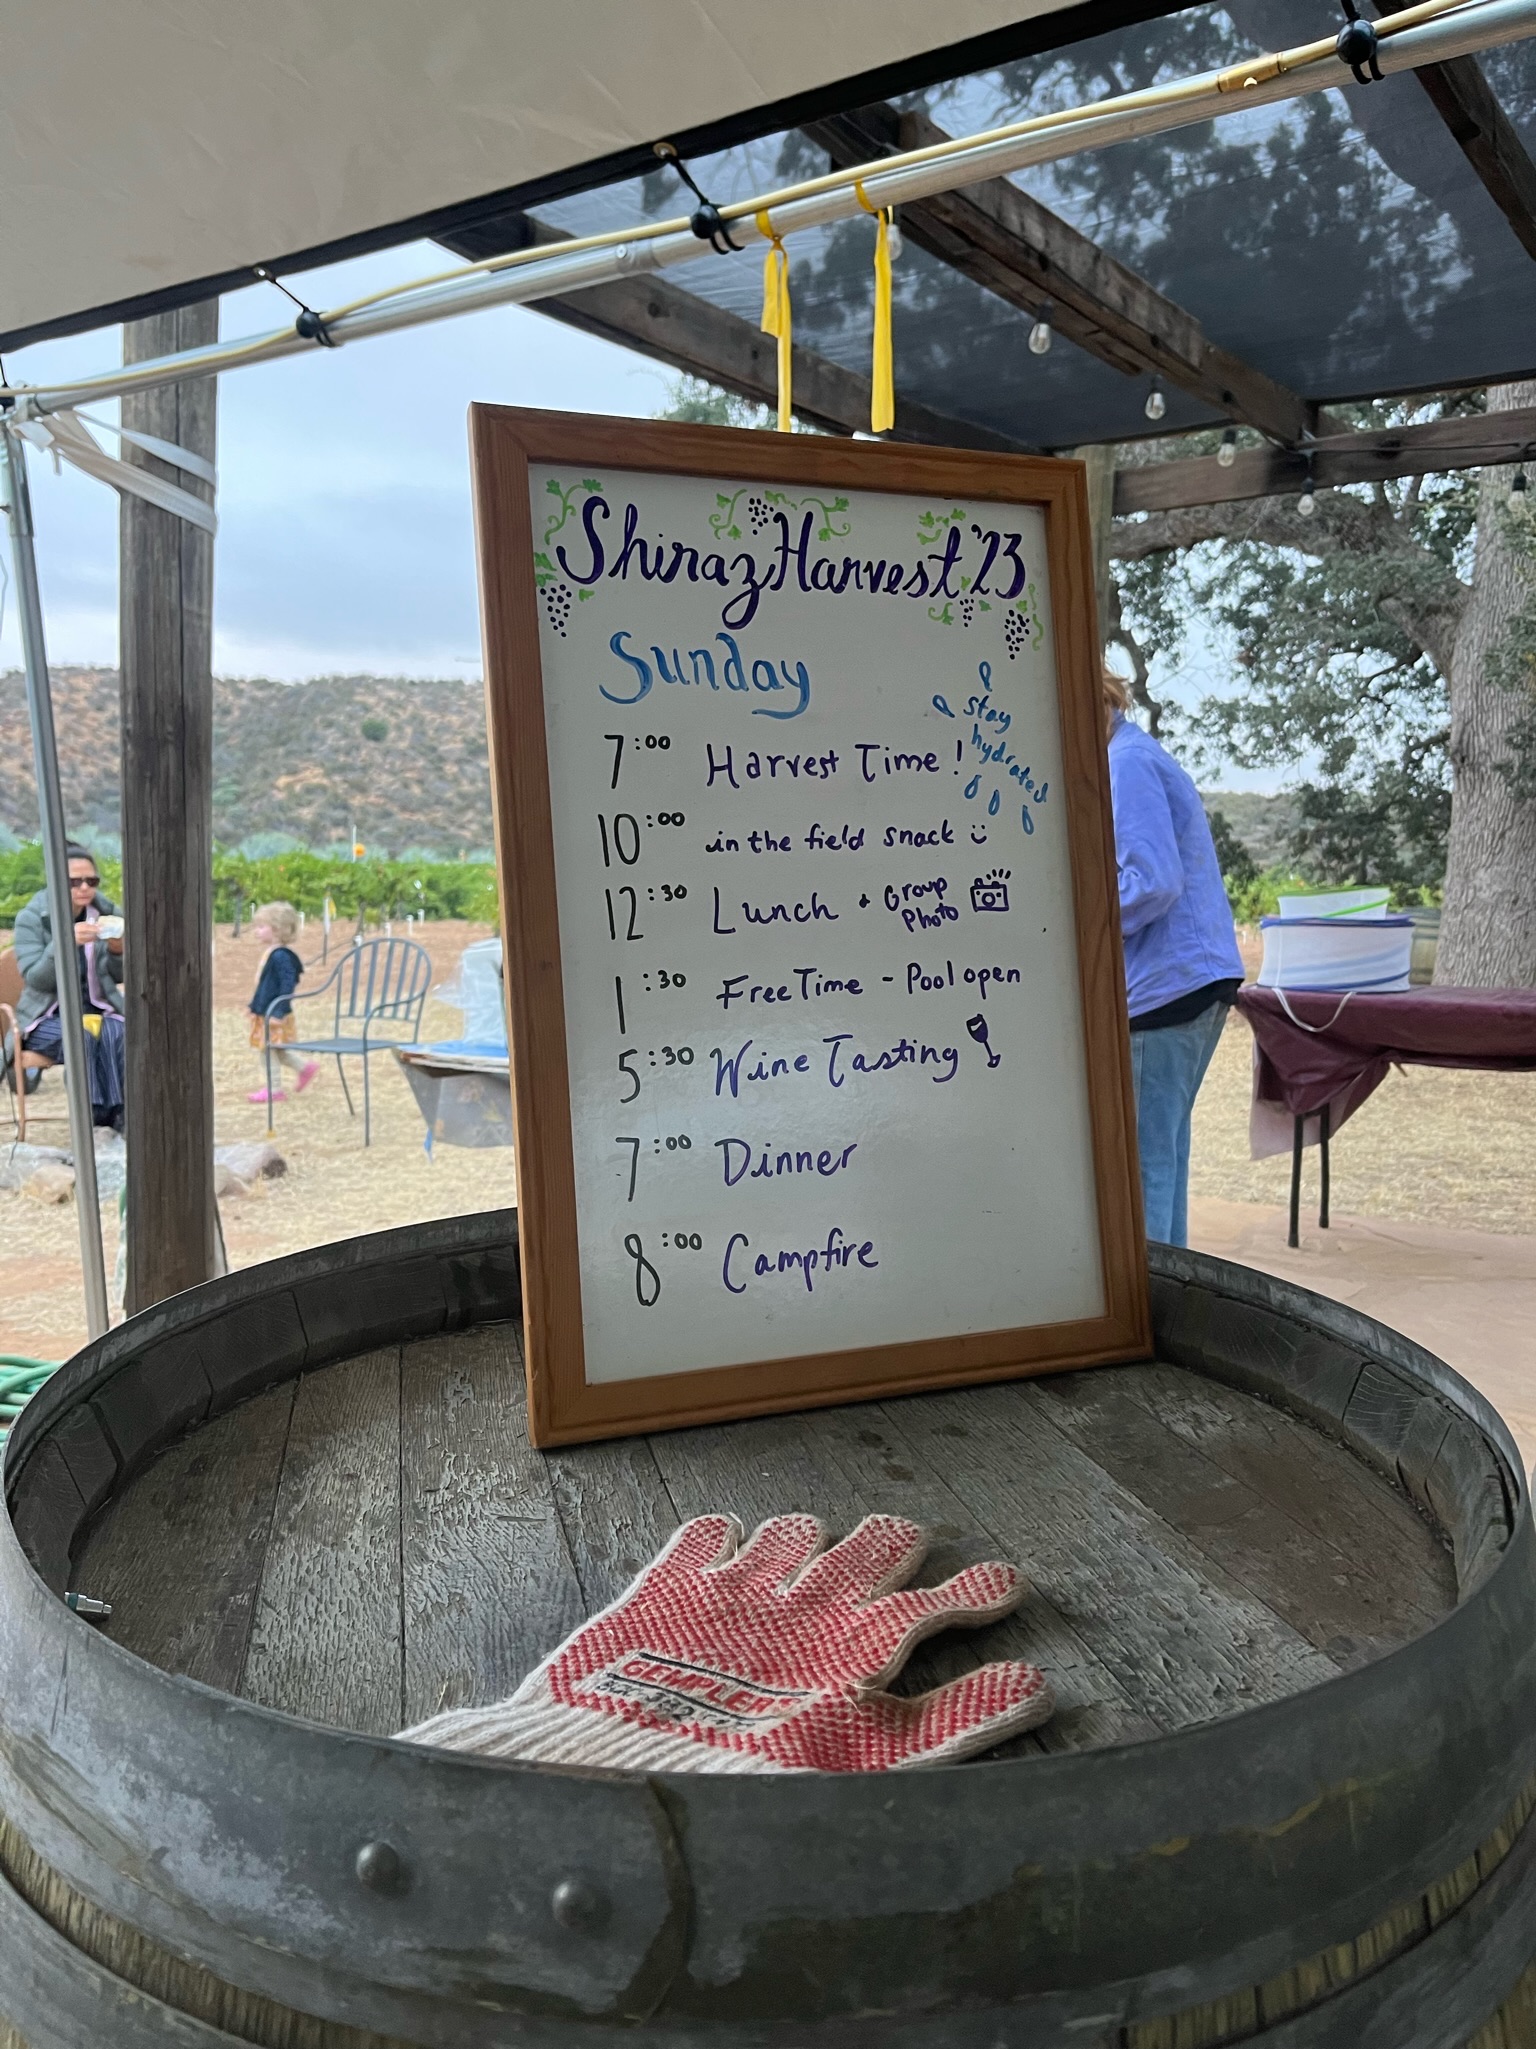 Shiraz Harvest '23
Sunday
stay
hydrated
7:00 Harvest Time!
10:00 in the field snack
12:30 Lunch + Group
Photo
1:30 Free Time - Pool open
5:30 Wine Tasting
7:00 Dinner
8:00 Campfire
GEMPLER'S